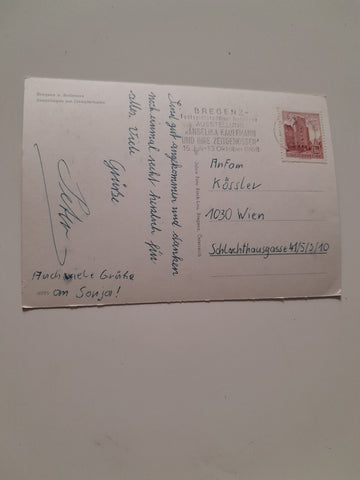 Bregenz a. Bodensee
Sind gut angekommen und danken
noch einmal recht herzlich für
alles. Viele
Grüße
Auch viele Grüße
an Sonja!
BREGENZ-
AUSSTELLUNG
"ANGELIKA KAUFFMANN
UND IHRE ZEITGENOSSEN"
AnFam
Kössler
1030 Wien
Schlachthausgasse 41/5/3/10